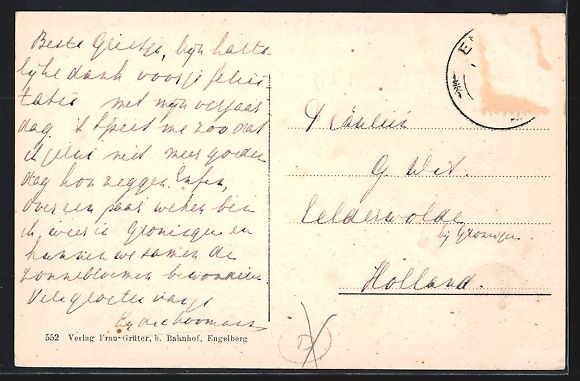 Beste Grietje, mijn harte
lijke dank voor je felici
tatie met mijn verjaar
dag. 't Speet me zoo dat
ik jelui niet meer goeden
dag kon zeggen. Enfin,
over een paar weken ben
ik weer in Groningen en
kunnen we samen de
zonnebloemen bewonderen
Vele groeten van je
Fräulein
G Wit.
Eelderwolde
bij Groningen.
Holland.
552 Verlag Frau-Grüter, b. Bahnhof, Engelberg